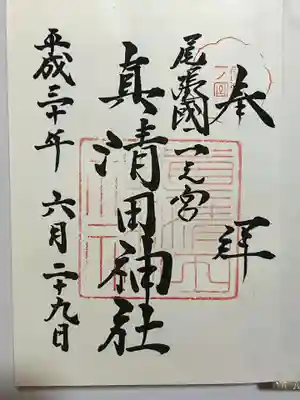 奉拝
尾張國一之宮
真清田神社
平成三十年 六月二十九日